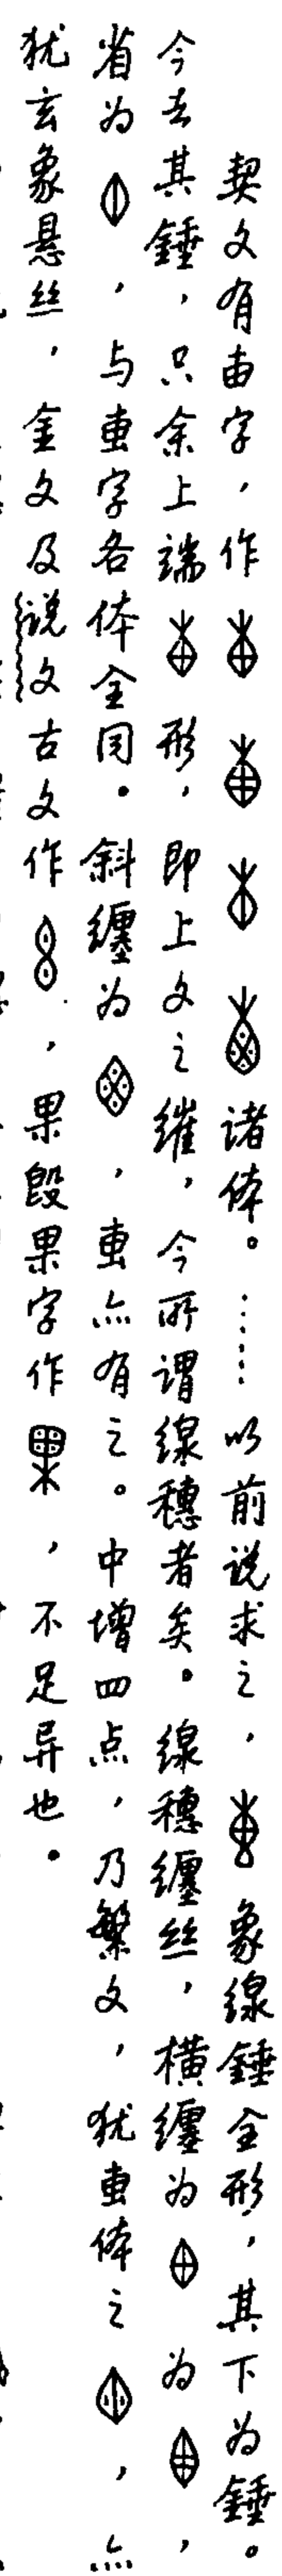 契文有字，作 诸体。……以前说求之，象線錘全形，其下为錘。
今去其錘，只余上端形，即上文之繀，今所谓線穗者矣。線穗纏丝，横纏为 为，
省为，与叀字各体全同。斜纏为，叀亦有之。中增四点，乃繁文，犹叀体之，亦
犹玄象悬丝，金文及说文古文作，果𣪘果字作，不足异也。